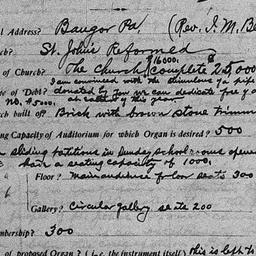 l Address? Bangor Pa (Rev. I. M. Be
ch? St. Johns Reformed
$16000.
of Church? The Church complete
I am convinced with the stimulous of a pipe
of Debt? donated by you we can dedicate free
No. $5000. this year.
ch built of? Brick with brown stone trimm
ng Capacity of Auditorium for which Organ is desired? 500
sliding partitions in Sunday school rooms opene
a seating capacity of 1000,
Floor? Main audience floor seats 300
Gallery? Circular gallery seats 200
mbership? 300
of proposed Organ? (i.e. the instrument itself) this is left to